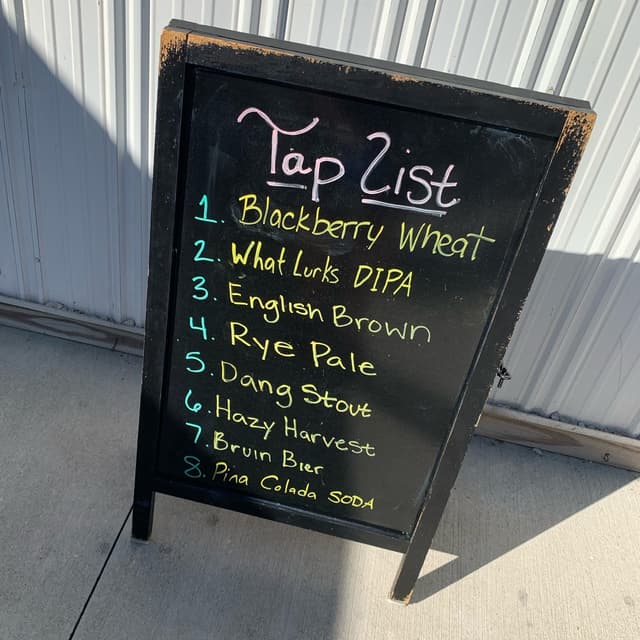 Tap List
1. Blackberry Wheat
2. What Lurks DIPA
3. English Brown
4. Rye Pale
5. Dang Stout
6. Hazy Harvest
7. Bruin Bier
8. Pina Colada SODA